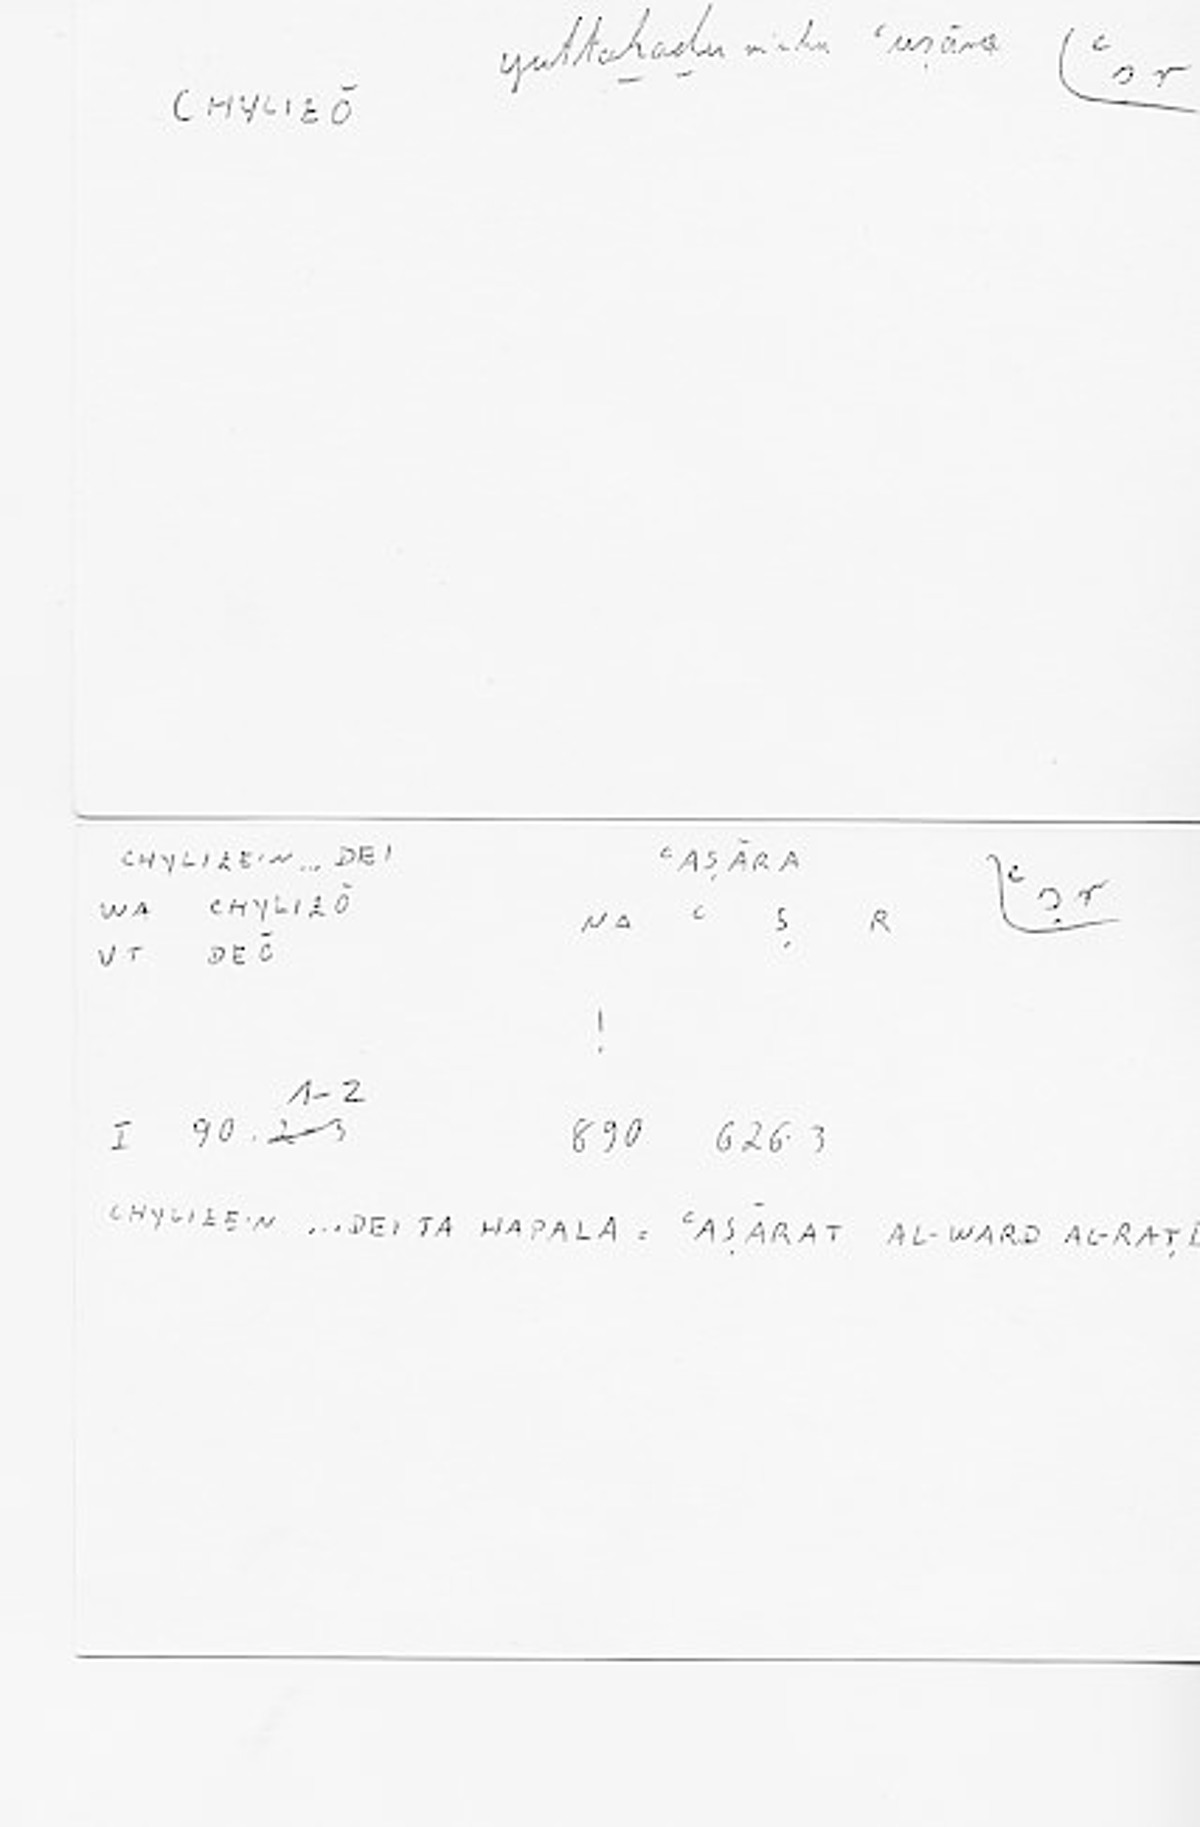 yuttaḫaḏu minhu ʿuṣāra ʿṣr
CHYLIZŌ
CHYLIZEIN ... DEI ʿAṢĀRA ʿṣr
WA CHYLIZŌ NA ʿ Ṣ R
VT DEŌ
!
1-2
I 90. 2-3 890 626.3
CHYLIZEIN ... DEI TA HAPALA = ʿAṢĀRAT AL-WARD AL-RAṬB